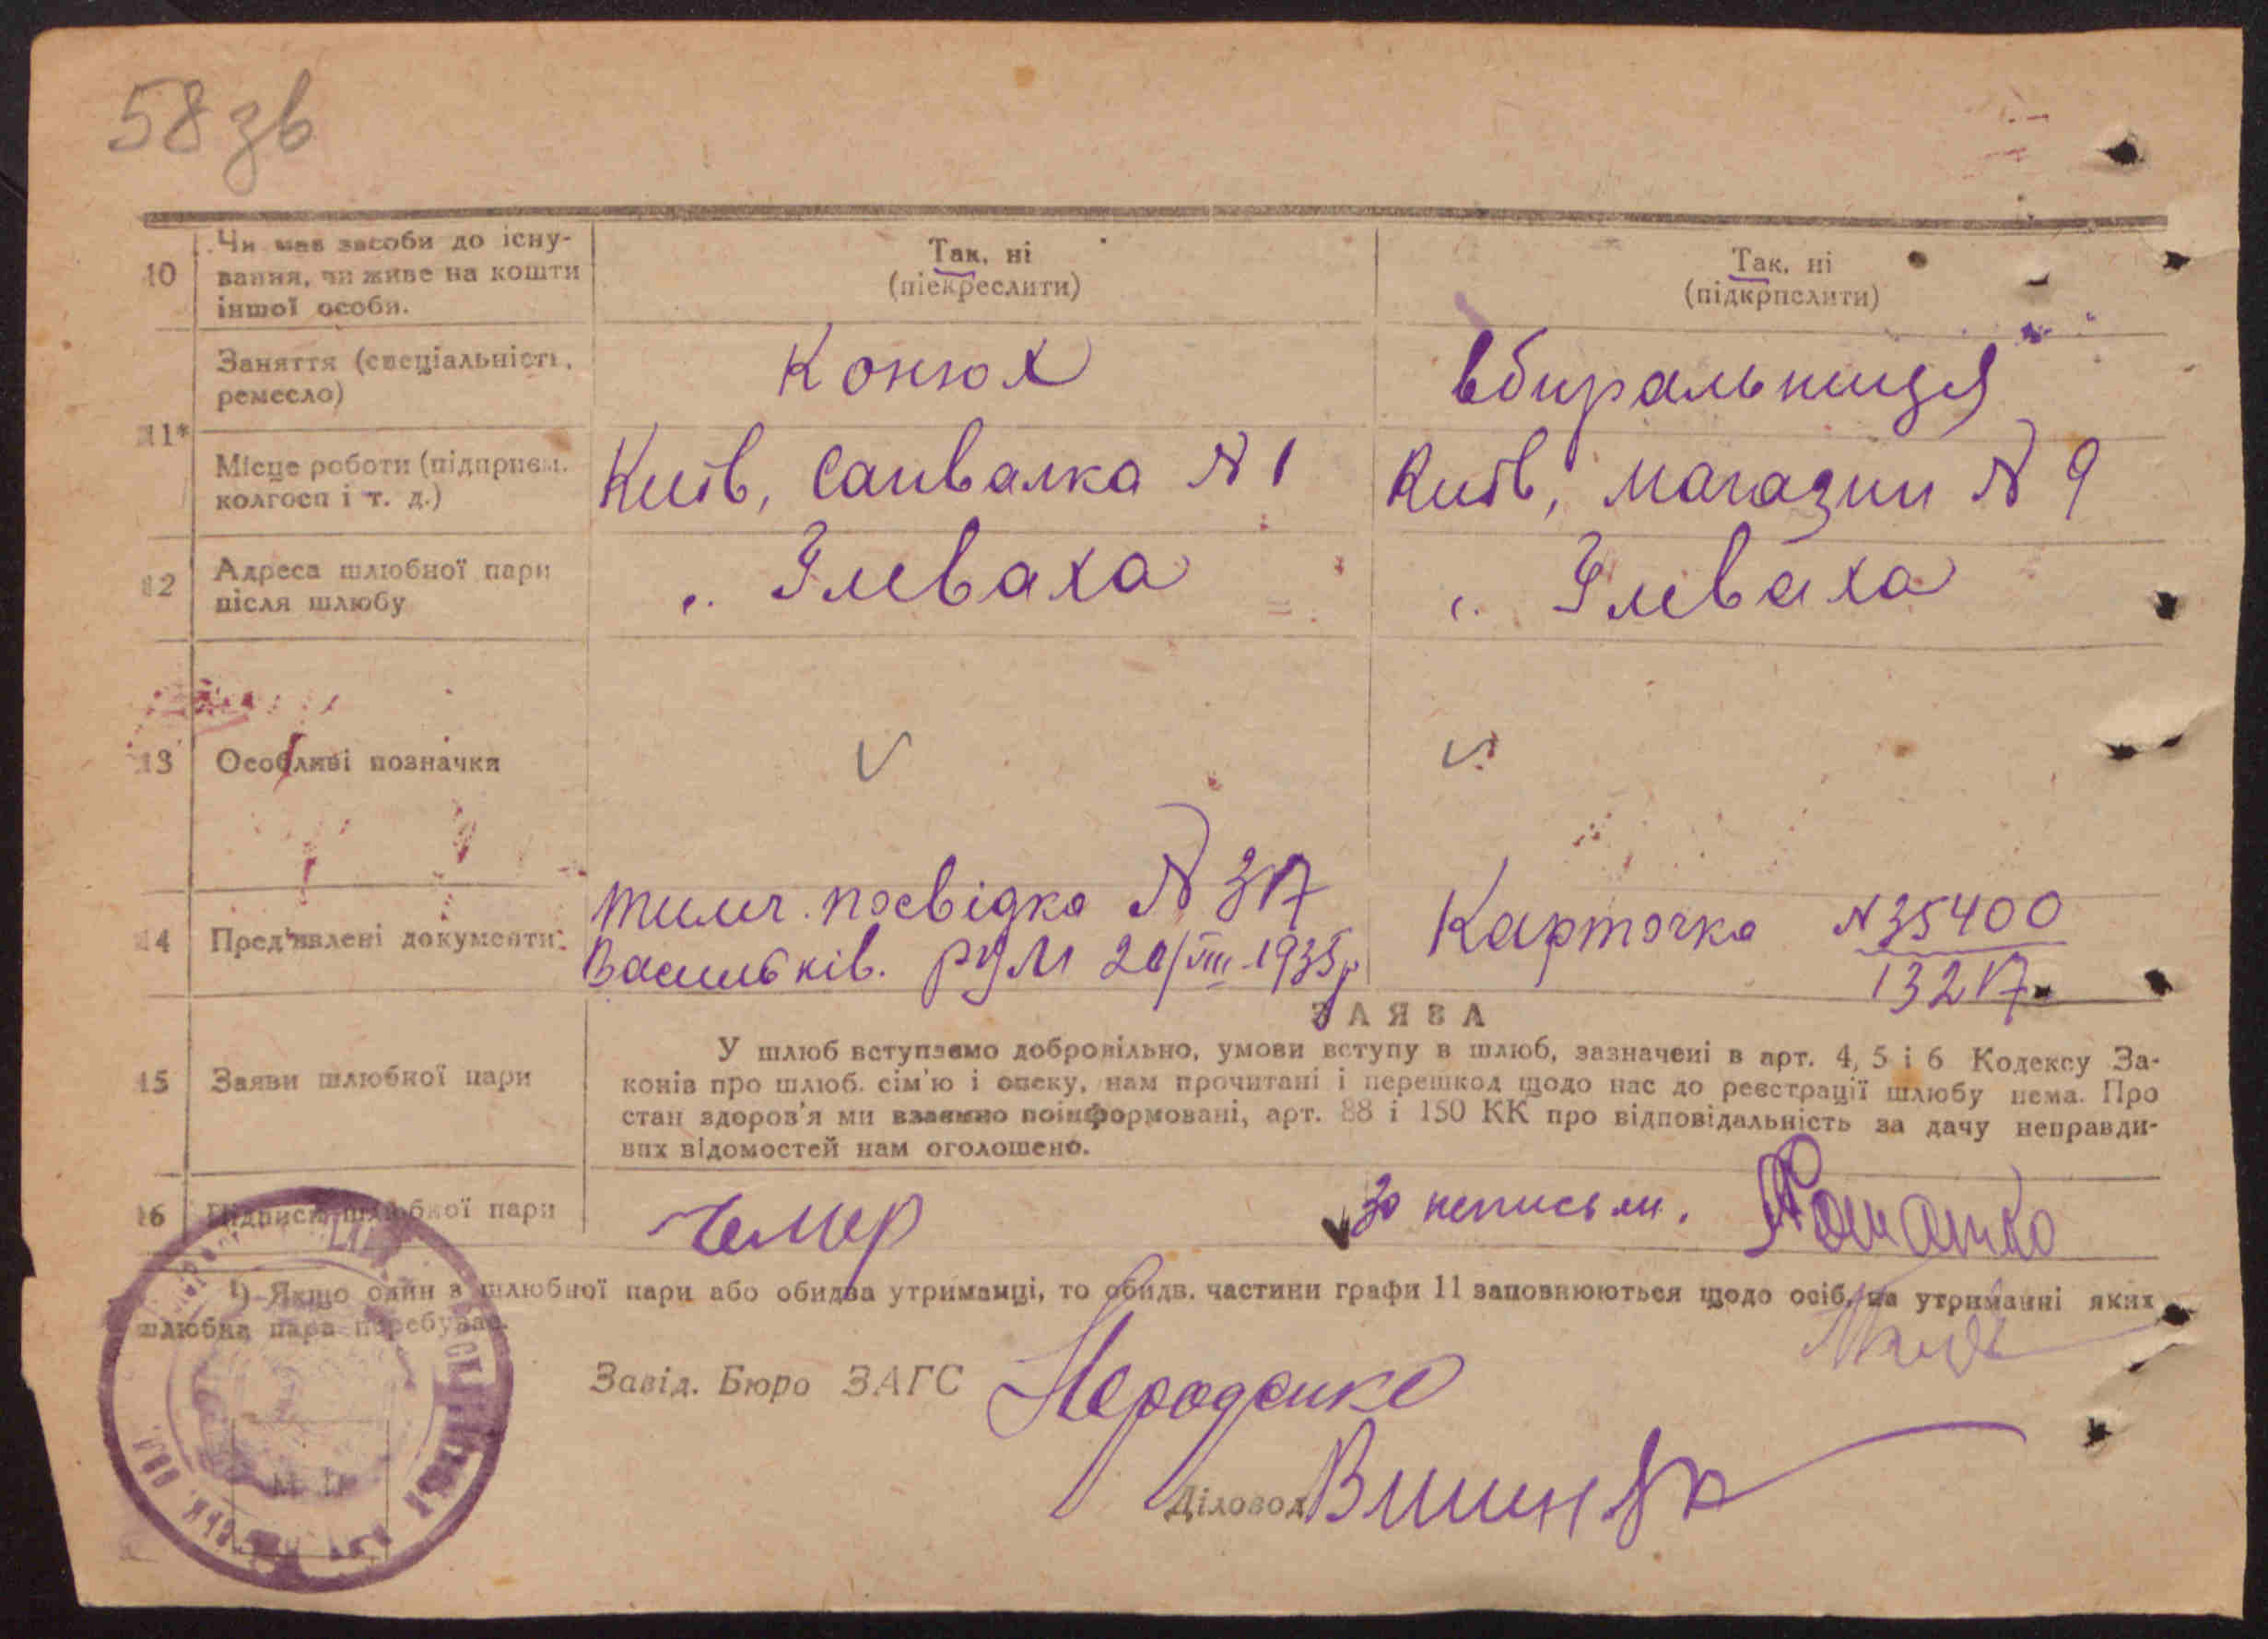 58 зв
10
Чи має засоби до існу-
вання, чи живе на кошти
іншої особи.
Так, ні
(піекреслити)
Так, ні
(підкрпслити)
11*
Заняття (спеціальність,
ремесло)
Конюх
вбиральниця
Місце роботи (підприєм.
колгосп і т. д.)
Київ, Санвалка № 1
Київ, магазин № 9
12
Адреса шлюбної пари
після шлюбу
с. Глеваха
с. Глеваха
13
Особливі позначки
14
Пред'явлені документи:
тимч. посвідка № 317
Васильків. РУМ 20/VIII-1935р
Карточка № 35400
13217
ЗАЯВА
15
Заяви шлюбної пари
У шлюб вступаємо добровільно, умови вступу в шлюб, зазначені в арт. 4, 5 і 6 Кодексу За-
конів про шлюб. сім'ю і опеку, нам прочитані і перешкод щодо нас до реєстрації шлюбу нема. Про
стан здоров'я ми взаємно поінформовані, арт. 88 і 150 КК про відповідальність за дачу неправди-
вих відомостей нам оголошено.
16
Підписи шлюбної пари
Чемер
за неписьм.
¹) Якщо один з шлюбної пари або обидва утриманці, то обидв. частини графи 11 заповнюються щодо осіб, на утриманні яких
шлюбна пара перебуває.
Завід. Бюро ЗАГС
Діловод
М. П.